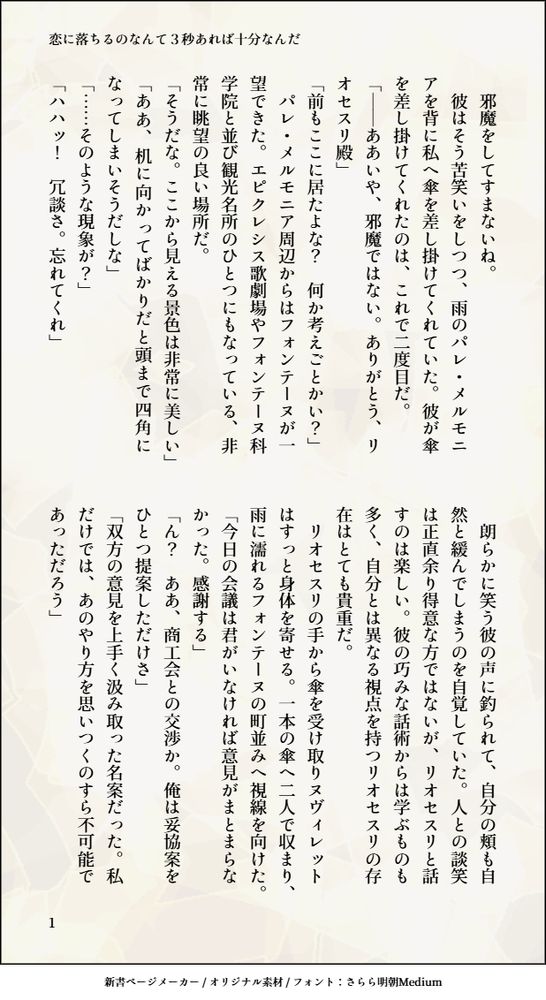 恋に落ちるのなんて３秒あれば十分なんだ
邪魔をしてすまないね。
彼はそう苦笑いをしつつ、雨のパレ・メルモニ
アを背に私へ傘を差し掛けてくれていた。彼が傘
を差し掛けてくれたのは、これで二度目だ。
「――ああいや、邪魔ではない。ありがとう、リ
オセスリ殿」
「前もここに居たよな？　何か考えごとかい？」
パレ・メルモニア周辺からはフォンテーヌが一
望できた。エピクレシス歌劇場やフォンテーヌ科
学院と並び観光名所のひとつにもなっている、非
常に眺望の良い場所だ。
「そうだな。ここから見える景色は非常に美しい」
「ああ、机に向かってばかりだと頭まで四角に
なってしまいそうだしな」
「……そのような現象が？」
「ハハッ！　冗談さ。忘れてくれ」
朗らかに笑う彼の声に釣られて、自分の頬も自
然と緩んでしまうのを自覚していた。人との談笑
は正直余り得意な方ではないが、リオセスリと話
すのは楽しい。彼の巧みな話術からは学ぶものも
多く、自分とは異なる視点を持つリオセスリの存
在はとても貴重だ。
リオセスリの手から傘を受け取りヌヴィレット
はすっと身体を寄せる。一本の傘へ二人で収まり、
雨に濡れるフォンテーヌの町並みへ視線を向けた。
「今日の会議は君がいなければ意見がまとまらな
かった。感謝する」
「ん？　ああ、商工会との交渉か。俺は妥協案を
ひとつ提案しただけさ」
「双方の意見を上手く汲み取った名案だった。私
だけでは、あのやり方を思いつくのすら不可能で
あっただろう」
1
新書ページメーカー / オリジナル素材 / フォント：さらら明朝Medium